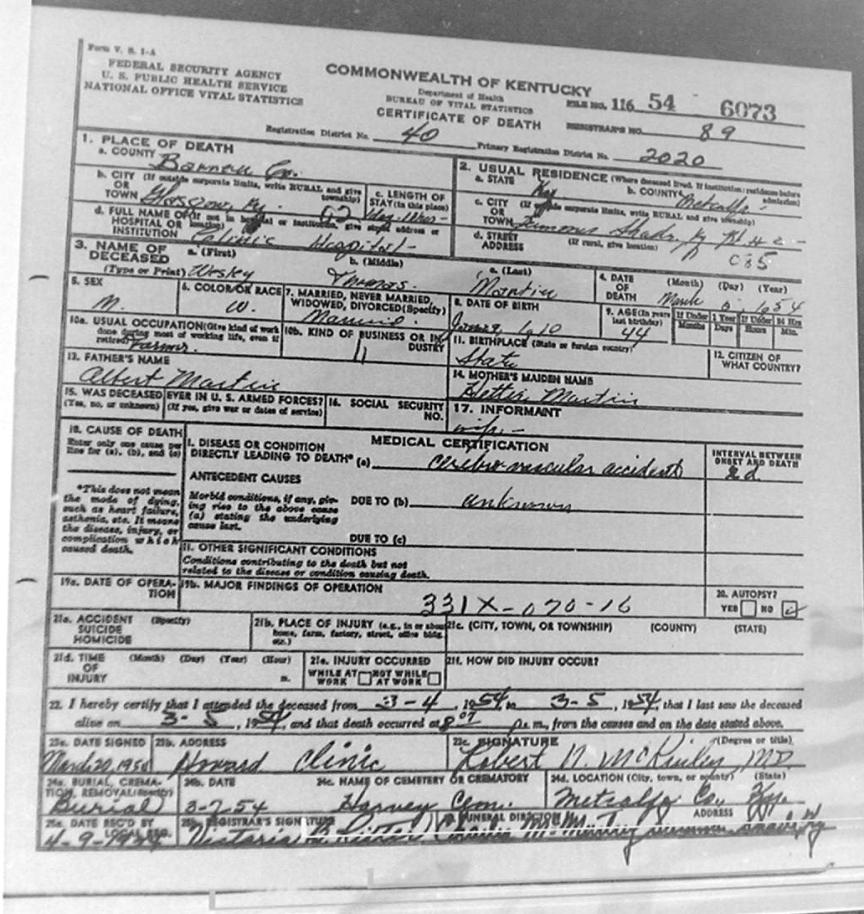 Form V. S. 1-A
FEDERAL SECURITY AGENCY
U. S. PUBLIC HEALTH SERVICE
NATIONAL OFFICE VITAL STATISTICS
COMMONWEALTH OF KENTUCKY
Department of Health
BUREAU OF VITAL STATISTICS
CERTIFICATE OF DEATH
FILE NO. 116 54 6073
REGISTRAR'S NO. 89
Registration District No. 40 Primary Registration District No. 2020
1. PLACE OF DEATH
a. COUNTY Barren Co.
b. CITY (If outside corporate limits, write RURAL and give township) OR TOWN Glasgow, Ky.
c. LENGTH OF STAY (in this place)
d. FULL NAME OF (If not in hospital or institution, give street address or location) HOSPITAL OR INSTITUTION Clinic Hospital
2. USUAL RESIDENCE (Where deceased lived. If institution: residence before admission)
a. STATE Ky b. COUNTY Metcalfe
c. CITY (If outside corporate limits, write RURAL and give township) OR TOWN Shade, Ky
d. STREET ADDRESS (If rural, give location)
085
3. NAME OF DECEASED (Type or Print)
a. (First) Wesley b. (Middle) Thomas c. (Last) Martin
4. DATE OF DEATH (Month) (Day) (Year) March 5 1954
5. SEX M.
6. COLOR OR RACE W.
7. MARRIED, NEVER MARRIED, WIDOWED, DIVORCED (Specify) Married
8. DATE OF BIRTH 1910
9. AGE (In years last birthday) 44
If Under 1 Year Months Days
If Under 24 Hrs Hours Min.
10a. USUAL OCCUPATION (Give kind of work done during most of working life, even if retired) Farmer
10b. KIND OF BUSINESS OR INDUSTRY
11. BIRTHPLACE (State or foreign country) State
12. CITIZEN OF WHAT COUNTRY?
13. FATHER'S NAME
Albert Martin
14. MOTHER'S MAIDEN NAME
Martin
15. WAS DECEASED EVER IN U. S. ARMED FORCES?
(Yes, no, or unknown) (If yes, give war or dates of service)
16. SOCIAL SECURITY NO.
17. INFORMANT
wife
18. CAUSE OF DEATH
Enter only one cause per line for (a), (b), and (c)
*This does not mean the mode of dying, such as heart failure, asthenia, etc. It means the disease, injury, or complication which caused death.
MEDICAL CERTIFICATION
I. DISEASE OR CONDITION
DIRECTLY LEADING TO DEATH* (a) cerebrovascular accident
INTERVAL BETWEEN ONSET AND DEATH
2 d.
ANTECEDENT CAUSES
Morbid conditions, if any, giving rise to the above cause (a) stating the underlying cause last.
DUE TO (b) unknown
DUE TO (c)
II. OTHER SIGNIFICANT CONDITIONS
Conditions contributing to the death but not
related to the disease or condition causing death.
19a. DATE OF OPERATION
19b. MAJOR FINDINGS OF OPERATION
331X-070-16
20. AUTOPSY?
YES NO
21a. ACCIDENT SUICIDE HOMICIDE (Specify)
21b. PLACE OF INJURY (e.g., in or about home, farm, factory, street, office bldg. etc.)
21c. (CITY, TOWN, OR TOWNSHIP) (COUNTY) (STATE)
21d. TIME OF INJURY (Month) (Day) (Year) (Hour) m.
21e. INJURY OCCURRED
WHILE AT WORK NOT WHILE AT WORK
21f. HOW DID INJURY OCCUR?
22. I hereby certify that I attended the deceased from 3-4, 1954, to 3-5, 1954, that I last saw the deceased
alive on 3-5, 1954, and that death occurred at m., from the causes and on the date stated above.
23a. DATE SIGNED
March 20, 195
23b. ADDRESS
Howard Clinic
23c. SIGNATURE (Degree or title)
Robert N. McKinley, MD
24a. BURIAL, CREMATION, REMOVAL (Specify)
Burial
24b. DATE
3-7-54
24c. NAME OF CEMETERY OR CREMATORY
Harvey Cem.
24d. LOCATION (City, town, or county) (State)
Metcalfe Co., Ky.
25a. DATE REC'D BY LOCAL REG.
4-9-1954
25b. REGISTRAR'S SIGNATURE
Victoria
FUNERAL DIRECTOR ADDRESS